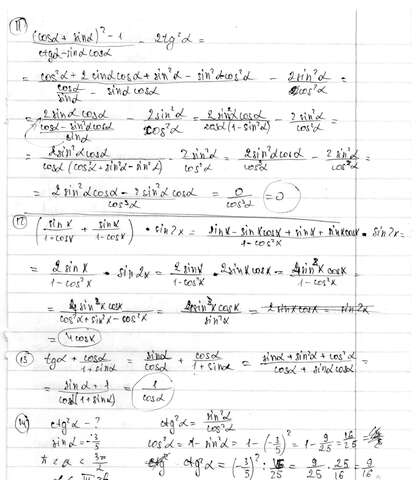 11) ((cosα + sinα)² - 1)/(ctgα - sinα cosα) - 2tg²α =
= (cos²α + 2 sinα cosα + sin²α - sin²α - cos²α)/(cosα/sinα - sinα cosα) - 2sin²α/cos²α =
= 2sinα cosα/((cosα - sin²α cosα)/sinα) - 2sin²α/cos²α = 2sin²α cosα/(cosα(1 - sin²α)) - 2sin²α/cos²α =
= 2sin²α cosα/(cosα(cos²α + sin²α - sin²α)) - 2sin²α/cos²α = 2sin²α cosα/cos³α - 2sin²α/cos²α =
= (2sin²α cosα - 2sin²α cosα)/cos³α = 0/cos³α = 0
12) (sinx/(1+cosx) + sinx/(1-cosx)) • sin2x = (sinx - sinx cosx + sinx + sinx cosx)/(1-cos²x) • sin2x =
= 2sinx/(1-cos²x) • sin2x = 2sinx/(1-cos²x) • 2sinx cosx = 4sin²x cosx/(1-cos²x) =
= 4sin²x cosx/(cos²x + sin²x - cos²x) = 4sin²x cosx/sin²x =
= 4cosx
13) tgα + cosα/(1+sinα) = sinα/cosα + cosα/(1+sinα) = (sinα + sin²α + cos²α)/(cosα + sinα cosα) =
= (sinα + 1)/(cosα(1+sinα)) = 1/cosα
14) ctg²α - ? ctg²α = sin²α/cos²α
sinα = -3/5 cos²α = 1 - sin²α = 1 - (-3/5)² = 1 - 9/25 = 16/25
π < α < 3π/2 ctg²α = (-3/5)² : 16/25 = 9/25 · 25/16 = 9/16